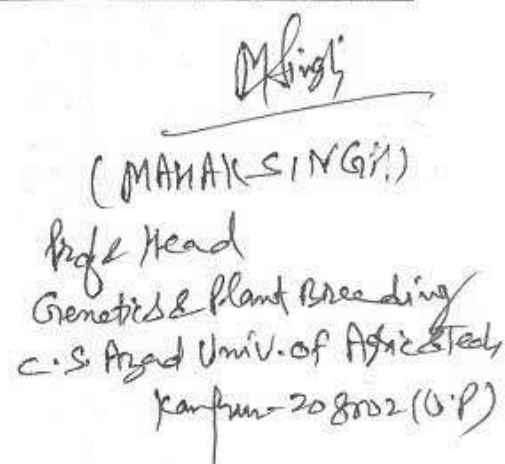 MSingh
(MAHAK SINGH)
Prof & Head
Genetics & Plant Breeding
C.S. Azad Univ. of Agric & Tech
Kanpur-208002 (U.P)